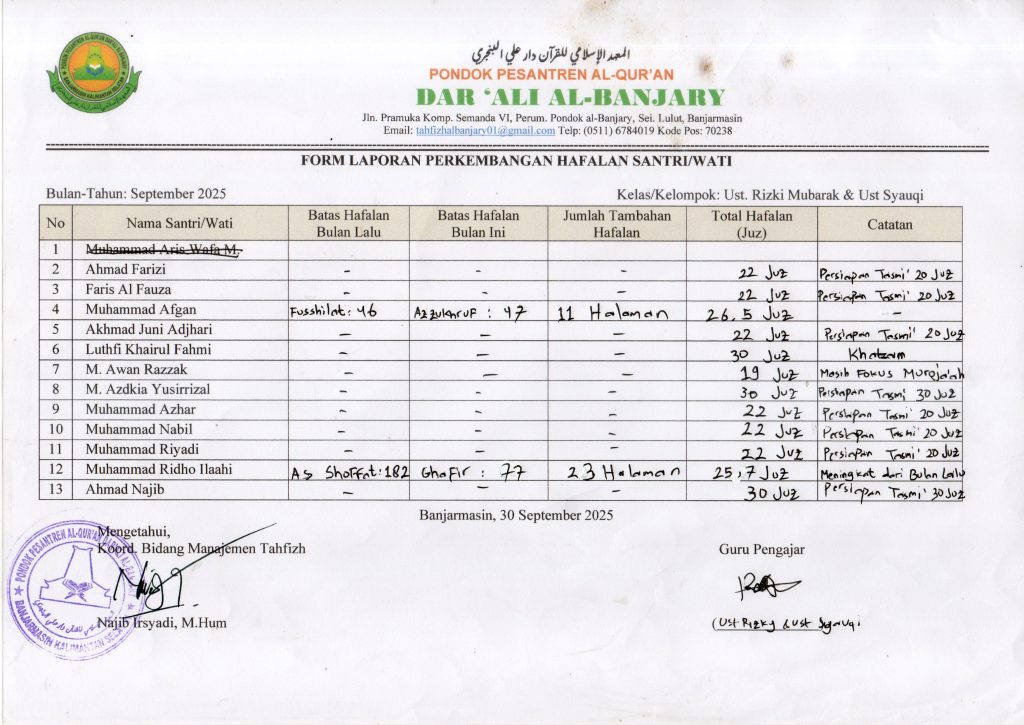 المعهد الإسلامي للقرآن دار علي البنجري
PONDOK PESANTREN AL-QUR'AN
DAR 'ALI AL-BANJARY
Jln. Pramuka Komp. Semanda VI, Perum. Pondok al-Banjary, Sei. Lulut, Banjarmasin
Email: tahfizhalbanjary01@gmail.com Telp: (0511) 6784019 Kode Pos: 70238
FORM LAPORAN PERKEMBANGAN HAFALAN SANTRI/WATI
Bulan-Tahun: September 2025 Kelas/Kelompok: Ust. Rizki Mubarak & Ust Syauqi
No Nama Santri/Wati Batas Hafalan Bulan Lalu Batas Hafalan Bulan Ini Jumlah Tambahan Hafalan Total Hafalan (Juz) Catatan
1 Muhammad Aris Wafa M.
2 Ahmad Farizi - - - 22 Juz Persiapan Tasmi' 20 Juz
3 Faris Al Fauza - - - 22 Juz Persiapan Tasmi' 20 Juz
4 Muhammad Afgan Fusshilat: 46 Azzukhruf : 47 11 Halaman 26,5 Juz -
5 Akhmad Juni Adjhari - - - 22 Juz Persiapan Tasmi' 20 Juz
6 Luthfi Khairul Fahmi - - - 30 Juz Khatam
7 M. Awan Razzak - - - 19 Juz Masih Fokus Muroja'ah
8 M. Azdkia Yusirrizal - - - 30 Juz Persiapan Tasmi' 30 Juz
9 Muhammad Azhar - - - 22 Juz Persiapan Tasmi' 20 Juz
10 Muhammad Nabil - - - 22 Juz Persiapan Tasmi' 20 Juz
11 Muhammad Riyadi - - - 22 Juz Persiapan Tasmi' 20 Juz
12 Muhammad Ridho Ilaahi As Shoffat: 182 Ghafir : 77 23 Halaman 25,7 Juz Meningkat dari Bulan lalu
13 Ahmad Najib - - - 30 Juz Persiapan Tasmi' 30 Juz
Banjarmasin, 30 September 2025
Mengetahui,
Koord. Bidang Manajemen Tahfizh Guru Pengajar
Najib Irsyadi, M.Hum (Ust Rizky & Ust Syauqi